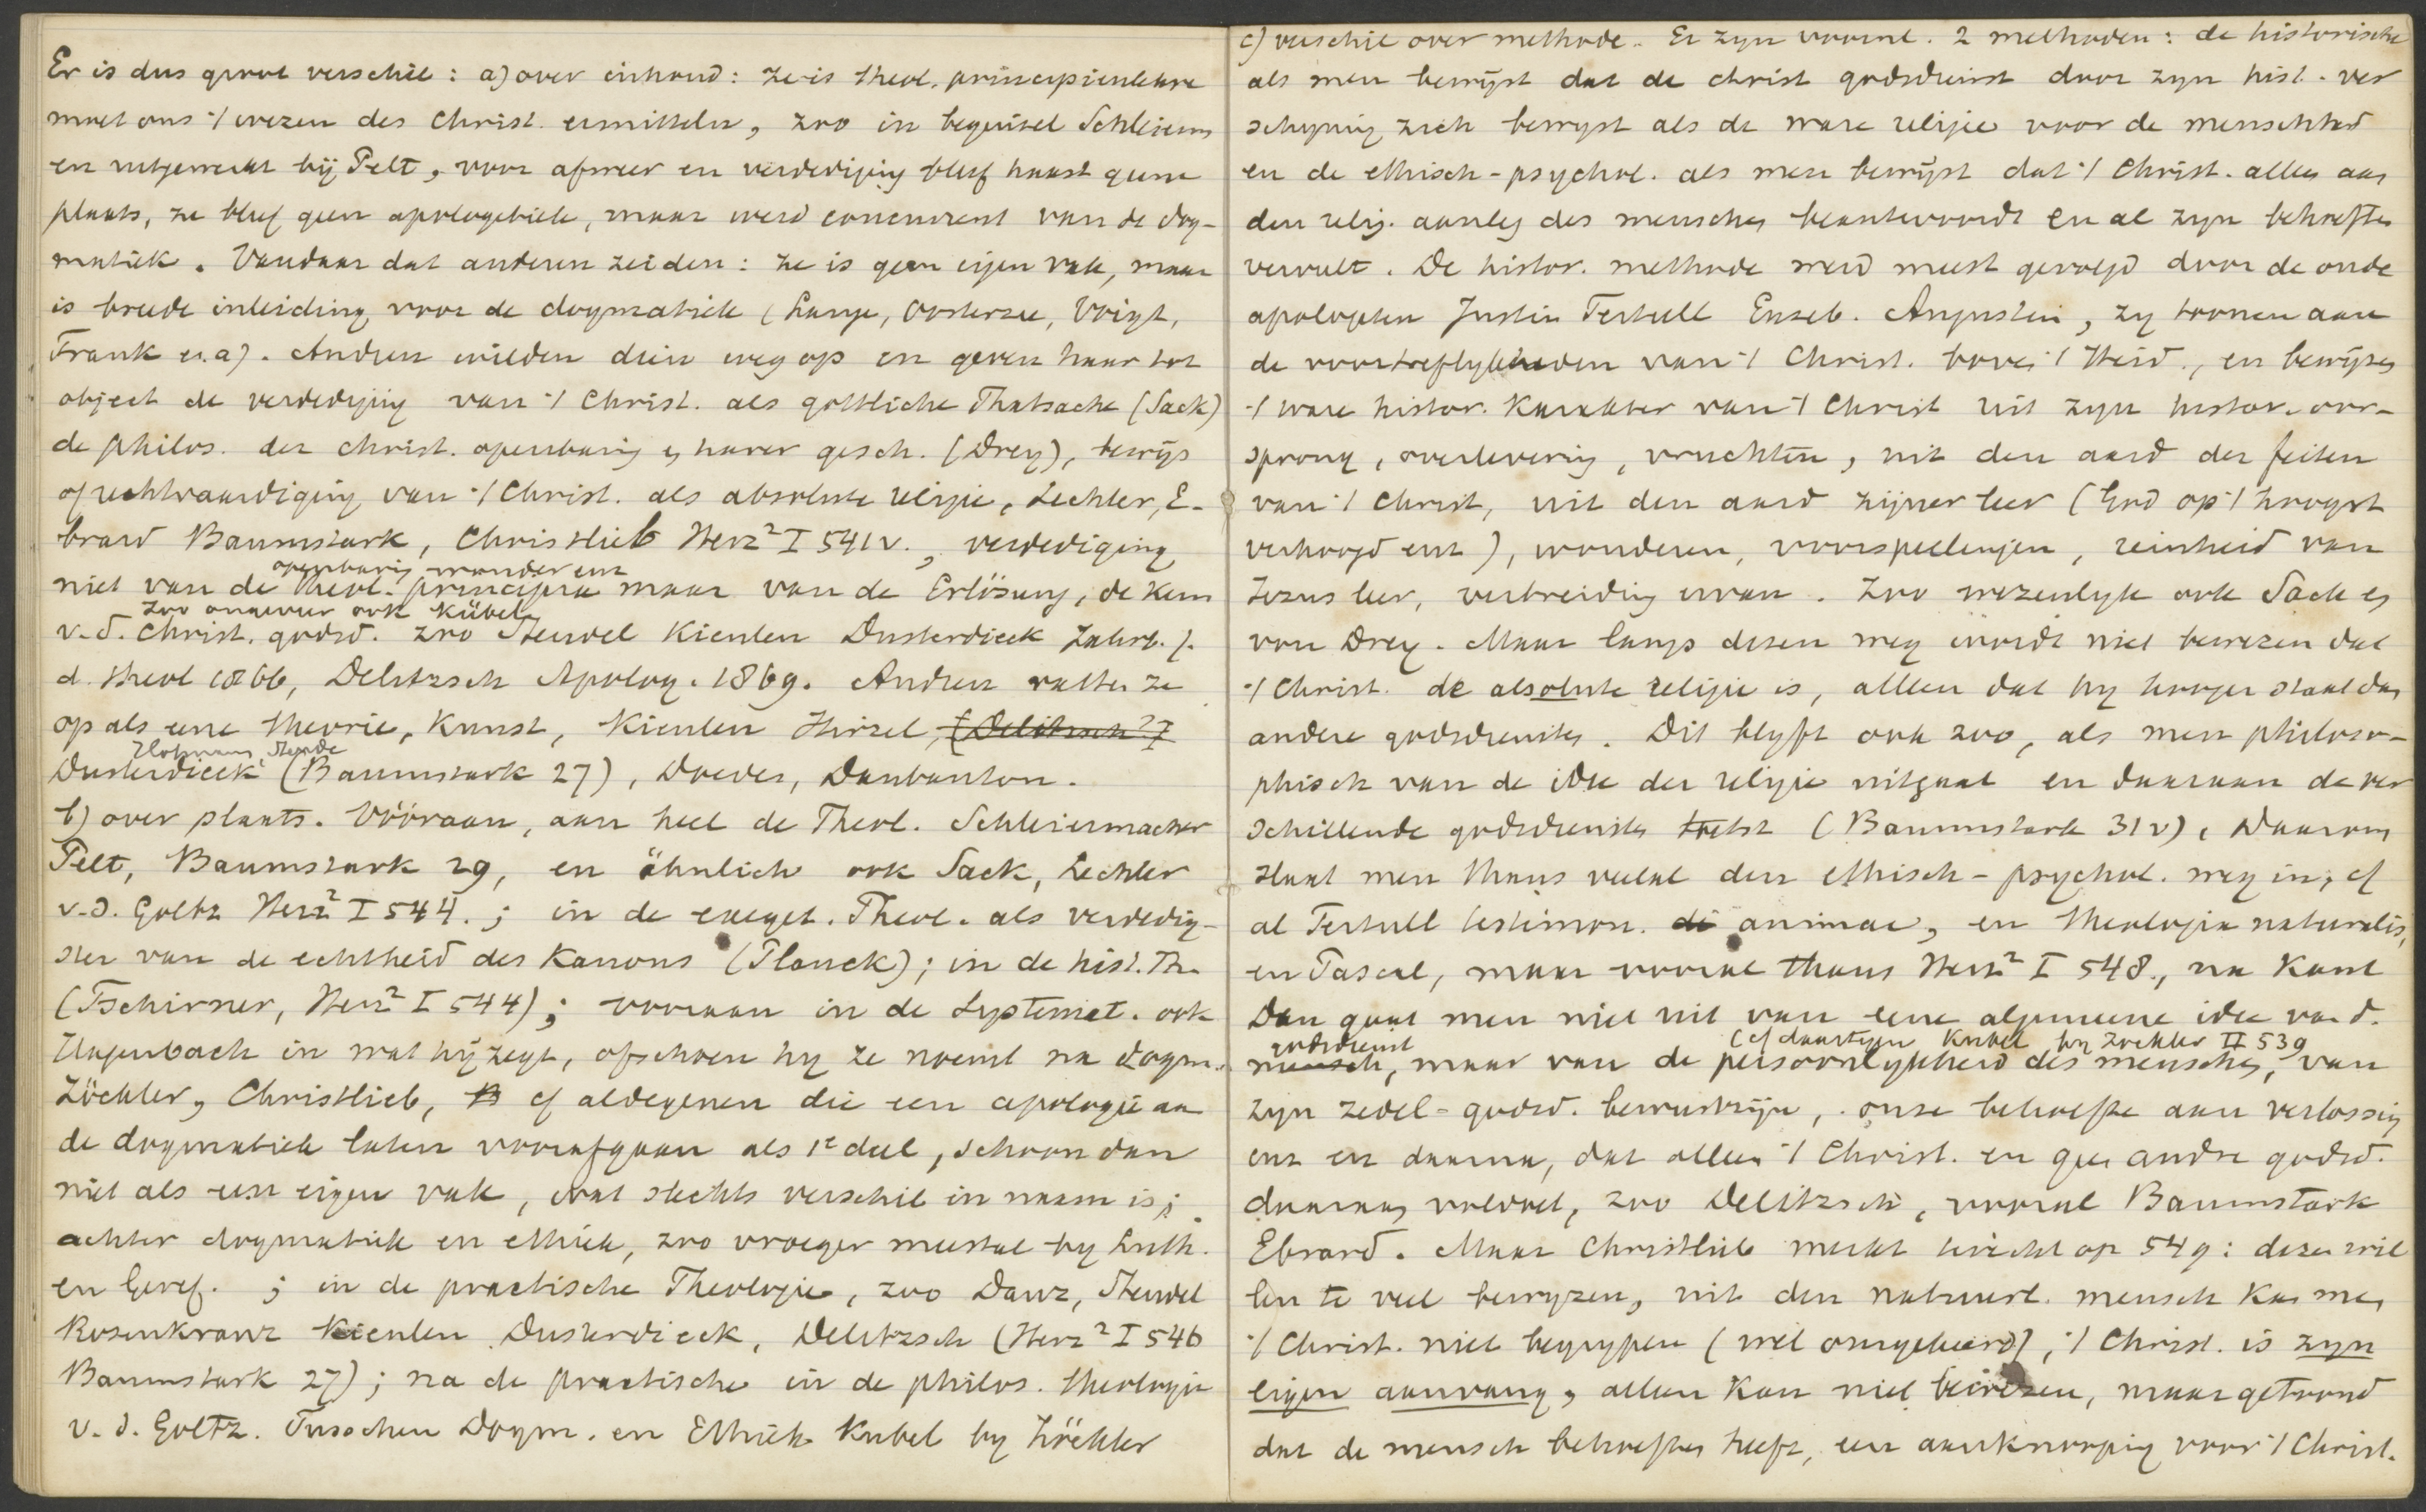 Er is dus groot verschil: a) over inhoud: ze is theol. principienleere
moet ons 't wezen des Christ. ermitteln, zoo in beginsel Schleierm
en uitgewerkt bij Pelt, voor afweer en verdediging bleef haast geene
plaats, ze bleef geen apologetiek, maar werd concurrent van de dog-
matiek. Vandaar dat anderen zeiden: ze is geen eigen vak, maar
is breede inleiding voor de dogmatiek (Lange, Oosterzee, Voigt,
Frank e.a). Andren wilden dien weg op en geven haar tot
object de verdediging van 't Christ. als göttliche Thatsache (Sack)
de philos. der christ. openbaring en harer gesch. (Drey), bewijs
of rechtvaardiging van 't Christ. als absolute religie, Lechler, E-
brard Baumstark, Christlieb Herz² I 541v., verdediging
openbaring wonder enz
niet van de theol. principia maar van de Erlösung, de Kern
zoo ongeveer ook Kübel
v.d. Christ. godsd. zoo Steudel Kienlen Dusterdieck Jahrb. f.
d. theol 1866, Delitzsch Apolog. 1869. Andren vatten ze
op als eene theorie, Kunst, Kienlen Hirzel, (Delitzsch² I
Dusterdieck (Baumstark 27), Doedes, Daubanton.
b) over plaats. Vóóraan, aan heel de Theol. Schleiermacher
Pelt, Baumstark 29, en ähnlich ook Sack, Lechler
v.d. Goltz Herz² I 544.; in de exeget. Theol. als verdedig-
ster van de echtheid des Kanons (Planck); in de hist. Th.
(Tschirner, Herz² I 544); vooraan in de Systemat. ook
Hagenbach in wat hij zegt, ofschoon hy ze noemt na dogm.
Zöckler, Christlieb, cf aldegenen die een apologie aan
de dogmatiek laten voorafgaan als 1e deel, schoon dan
niet als een eigen vak, wat slechts verschil in naam is;
achter dogmatiek en ethiek, zoo vroeger meestal by Luth.
en Geref. ; in de practische Theologie, zoo Danz, Steudel
Rosenkranz Kienlen Dusterdieck, Delitzsch (Herz² I 546
Baumstark 27); na de practische in de philos. theologie
v.d. Goltz. Tusschen Dogm. en Ethiek Kubel by Zöckler
c) verschil over methode. Er zyn voornl. 2 methoden: de historische
als men bewijst dat de christ godsdienst door zyn hist. ver
schyning zich bewyst als de ware religie voor de menschheid
en de ethisch-psychol. als men bewijst dat 't Christ. alleen aan
den relig. aanleg des menschen beantwoordt en al zyn behoeften
vervult. De histor. methode werd meest gevolgd door de oude
apologeten Justin Tertull Euseb. Augustin, zy toonen aan
de voortreflykheden van 't Christ. boven 't Heid., en bewijzen
't ware histor. Karakter van 't Christ uit zyn histor. oor-
sprong, overlevering, vruchten, uit den aard der feiten
van 't Christ, uit den aard zijner leer (God op 't hoogst
verhoogd enz), wonderen, voorspellingen, reinheid van
Jezus leer, verbreiding ervan. Zoo wezenlyk ook Sack en
von Drey. Maar langs dezen weg wordt niet bewezen dat
't Christ. de absolute religie is, alleen dat hy hooger staat dan
andere godsdiensten. Dit blyft ook zoo, als men philoso-
phisch van de idee der religie uitgaat en daaraan de ver
schillende godsdiensten toetst (Baumstark 31v). Daarom
slaat men thans veelal den ethisch-psychol. weg in, cf
al Tertull testimon. animae, en theologia naturalis,
en Pascal, maar vooral thans Herz² I 548., na Kant
Dan gaat men niet uit van eene algemeene idee van d.
godsdienst (cf daartegen Kubel by Zockler II 539
mensch, maar van de persoonlykheid des menschen, van
zyn zedel-godsd. bewustzijn, onze behoefte aan verlossing
enz en daarna, dat alleen 't Christ. en geen andre godsd.
daaraan voldoet, zoo Delitzsch, vooral Baumstark
Ebrard. Maar Christlieb merkt terecht op 549: deze wil
len te veel bewyzen, uit den natuurl. mensch kan men
't Christ. niet begrypen (wel omgekeerd), 't Christ. is zyn
eigen aanvang, alleen kan niet bewezen, maar getoond
dat de mensch behoeften heeft, een aanknooping voor 't Christ.